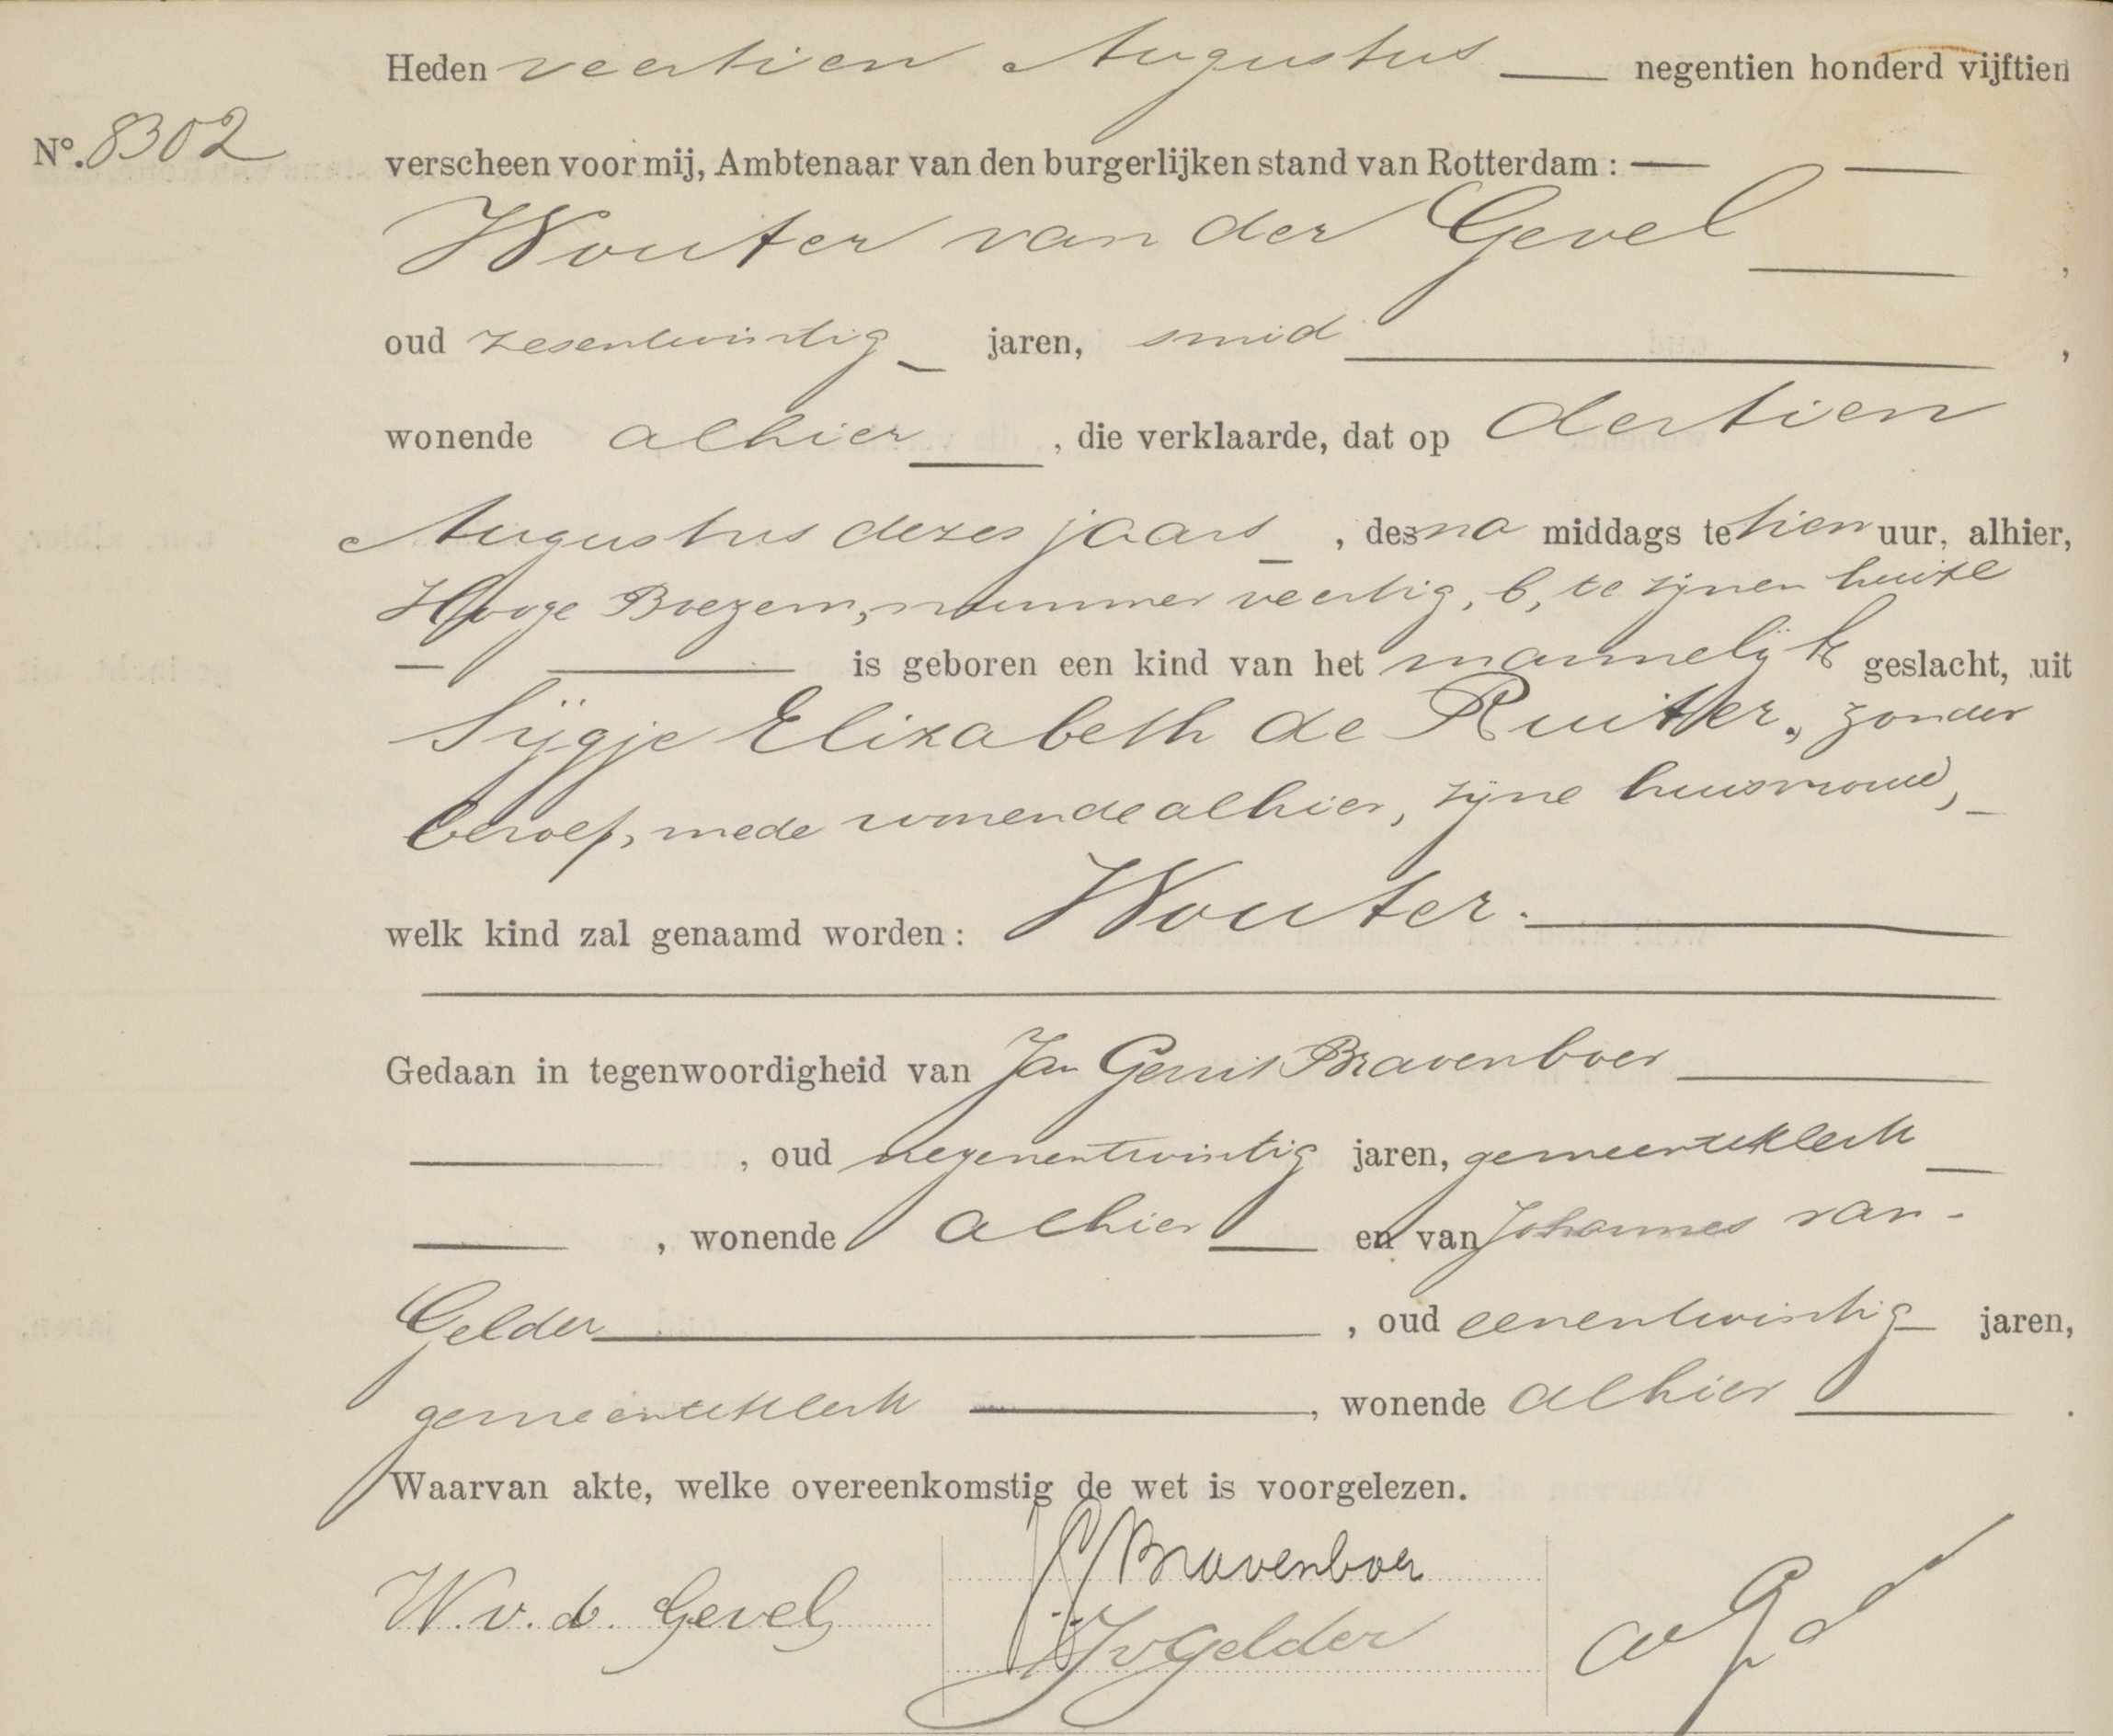 Heden veertien Augustus negentien honderd vijftien
No. 8302
verscheen voor mij, Ambtenaar van den burgerlijken stand van Rotterdam :
Wouter van der Gevel ,
oud zesentwintig jaren, smid ,
wonende alhier , die verklaarde, dat op dertien
Augustus dezes jaars , des na middags te tien uur, alhier,
Hooge Boezem, nummer veertig, b, te zijnen huize
is geboren een kind van het mannelijk geslacht, uit
Sijgje Elizabeth de Ruiter, zonder
beroep, mede wonende alhier, zijne huisvrouw,
welk kind zal genaamd worden : Wouter.
Gedaan in tegenwoordigheid van Jan Gerrit Bravenboer
, oud negenentwintig jaren, gemeenteklerk
, wonende alhier en van Johannes van
Gelder , oud eenentwintig jaren,
gemeenteklerk , wonende alhier .
Waarvan akte, welke overeenkomstig de wet is voorgelezen.
JGBravenboer
W. v. d. Gevel
JvGelder